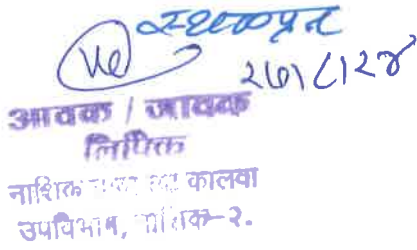 स्थळप्रत
२७/८/२४
आवक / जावक
लिपिक
नाशिक कालवा
उपविभाग, नाशिक-२.